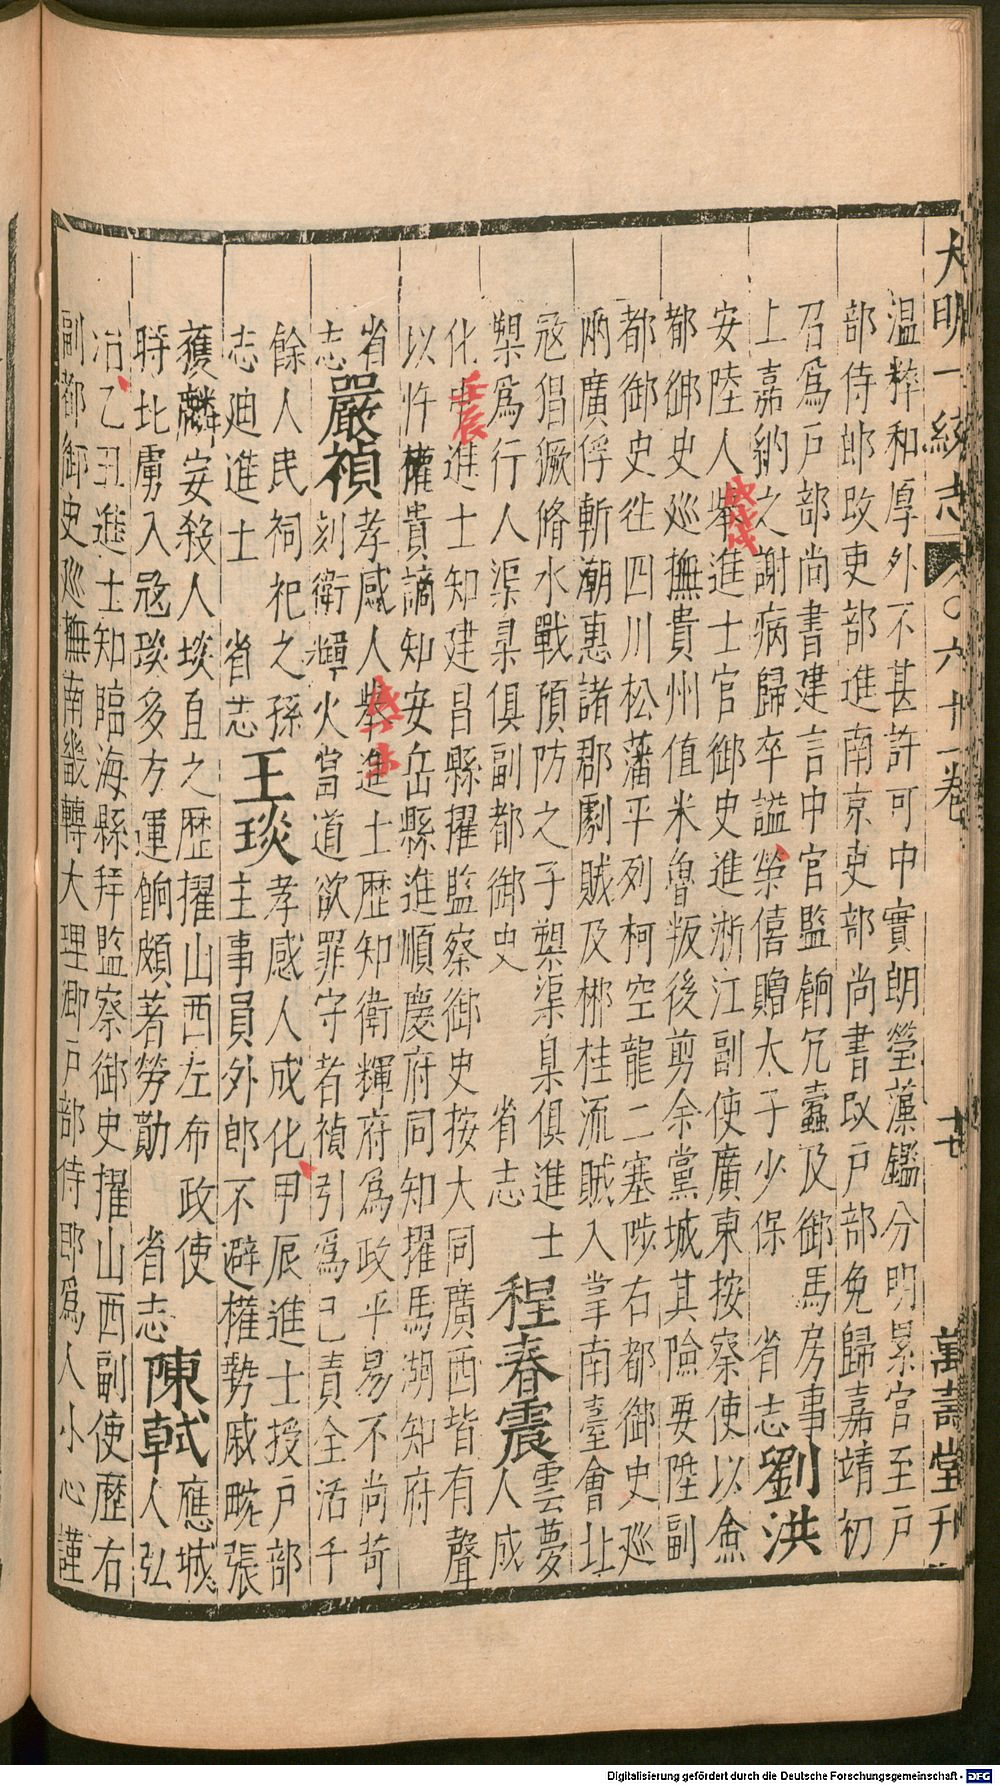 大明一統志 六十一卷 十七 萬壽堂刊
溫粹和厚外不甚許可中實朗瑩藻鑑分明累官至戶
部侍郎改吏部進南京吏部尚書改戶部免歸嘉靖初
召爲戶部尚書建言中官監餉冗蠹及御馬房事
上嘉納之謝病歸卒謚榮僖贈太子少保 省志 劉洪
安陸人舉進士官御史進浙江副使廣東按察使以僉
都御史巡撫貴州值米魯叛後剪余黨城其險要陞副
都御史徃四川松藩平列柯空龍二塞陟右都御史巡
兩廣俘斬潮惠諸郡劇賊及郴桂流賊入掌南臺會北
冦猖獗脩水戰預防之子槩渠臬俱進士 程春震 雲夢
槩爲行人渠臬俱副都御史 省志 人成
化進士知建昌縣擢監察御史按大同廣西皆有聲
以忤權貴謫知安岳縣進順慶府同知擢馬湖知府
省志 嚴禎 孝感人舉進士歴知衛輝府爲政平易不尚苛
刻衛輝火當道欲罪守者禎引爲己責全活千
餘人民祠祀之孫 王琰 孝感人成化甲辰進士授戶部
志廸進士 省志 主事員外郎不避權勢戚畹張
獲麟妄殺人琰直之歴擢山西左布政使 陳𩏑 應城
時北虜入冦琰多方運餉頗著勞勣 省志 人弘
治乙丑進士知臨海縣拜監察御史擢山西副使歷右
副都御史巡撫南畿轉大理卿戶部侍郎爲人小心謹
戊戌
壬辰
Digitalisierung gefördert durch die Deutsche Forschungsgemeinschaft - DFG